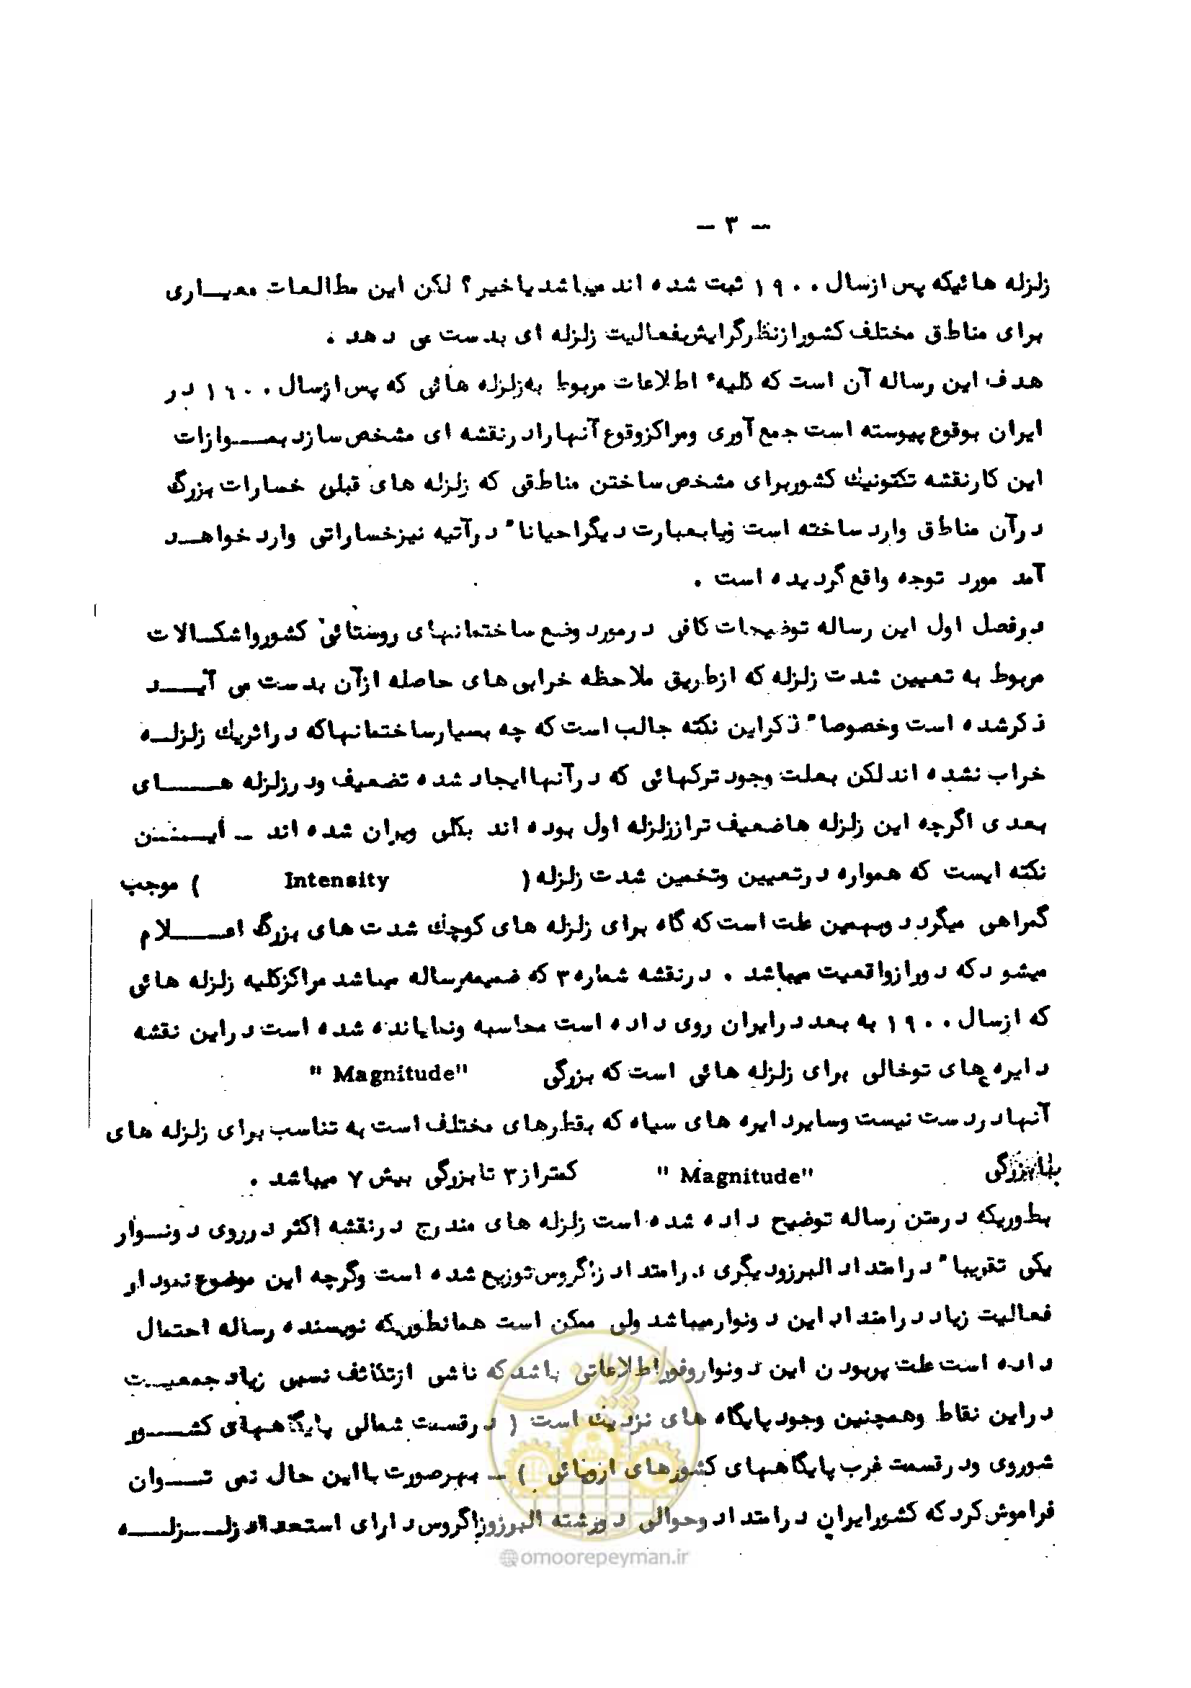 – ۳ –
زلزله هائیکه پس ازسال ۱۹۰۰ ثبت شده اند میباشد یا خیر؟ لکن این مطالعات معیاری
برای مناطق مختلف کشورازنظرگرایش بفعالیت زلزله ای بدست می دهد .
هدف این رساله آن است که کلیهٔ اطلاعات مربوط به زلزله هائی که پس ازسال ۱۹۰۰ در
ایران بوقوع پیوسته است جمع آوری ومراکزوقوع آنهارادرنقشه ای مشخص سازد بموازات
این کارنقشه تکتونیک کشوربرای مشخص ساختن مناطقی که زلزله های قبلی خسارات بزرگ
درآن مناطق وارد ساخته است ویابعبارت دیگراحیاناً درآتیه نیزخساراتی وارد خواهد
آمد مورد توجه واقع گردیده است .
درفصل اول این رساله توضیحات کافی درمورد وضع ساختمانهای روستائی کشورواشکالات
مربوط به تعیین شدت زلزله که ازطریق ملاحظه خرابی های حاصله ازآن بدست می آید
ذکرشده است وخصوصاً ذکراین نکته جالب است که چه بسیارساختمانهاکه دراثریک زلزله
خراب نشده اند لکن بعلت وجود ترکهائی که درآنهاایجاد شده تضعیف ودرزلزله های
بعدی اگرچه این زلزله هاضعیف ترازلزله اول بوده اند بکلی ویران شده اند – این
نکته ایست که همواره درتعیین وتخمین شدت زلزله ( Intensity ) موجب
گمراهی میگردد وبهمین علت است که گاه برای زلزله های کوچک شدت های بزرگ اعلام
میشود که دورازواقعیت میباشد . درنقشه شماره ۳ که ضمیمه رساله میباشد مراکزکلیه زلزله هائی
که ازسال ۱۹۰۰ به بعد درایران روی داده است محاسبه ونمایانده شده است دراین نقشه
دایره های توخالی برای زلزله هائی است که بزرگی "Magnitude"
آنهادردست نیست وسایردایره های سیاه که بقطرهای مختلف است به تناسب برای زلزله های
با بزرگی "Magnitude" کمتراز ۳ تا بزرگی بیش ۷ میباشد .
بطوریکه درمتن رساله توضیح داده شده است زلزله های مندرج درنقشه اکثر درروی دونوار
یکی تقریباً درامتداد البرزودیگری درامتداد زاگروس توزیع شده است وگرچه این موضوع نمودار
فعالیت زیاد درامتداد این دونوارمیباشد ولی ممکن است همانطوریکه نویسنده رساله احتمال
داده است علت پربودن این دونواروفوراطلاعاتی باشد که ناشی ازتکاثف نسبی زیاد جمعیت
دراین نقاط وهمچنین وجود پایگاه های نزدیک است ( درقسمت شمالی پایگاههای کشور
شوروی ودرقسمت غرب پایگاههای کشورهای اروپائی ) – بهرصورت بااین حال نمی توان
فراموش کرد که کشورایران درامتداد وحوالی دورشته البرزوزاگروس دارای استعداد زلزله
@omoorepeyman.ir